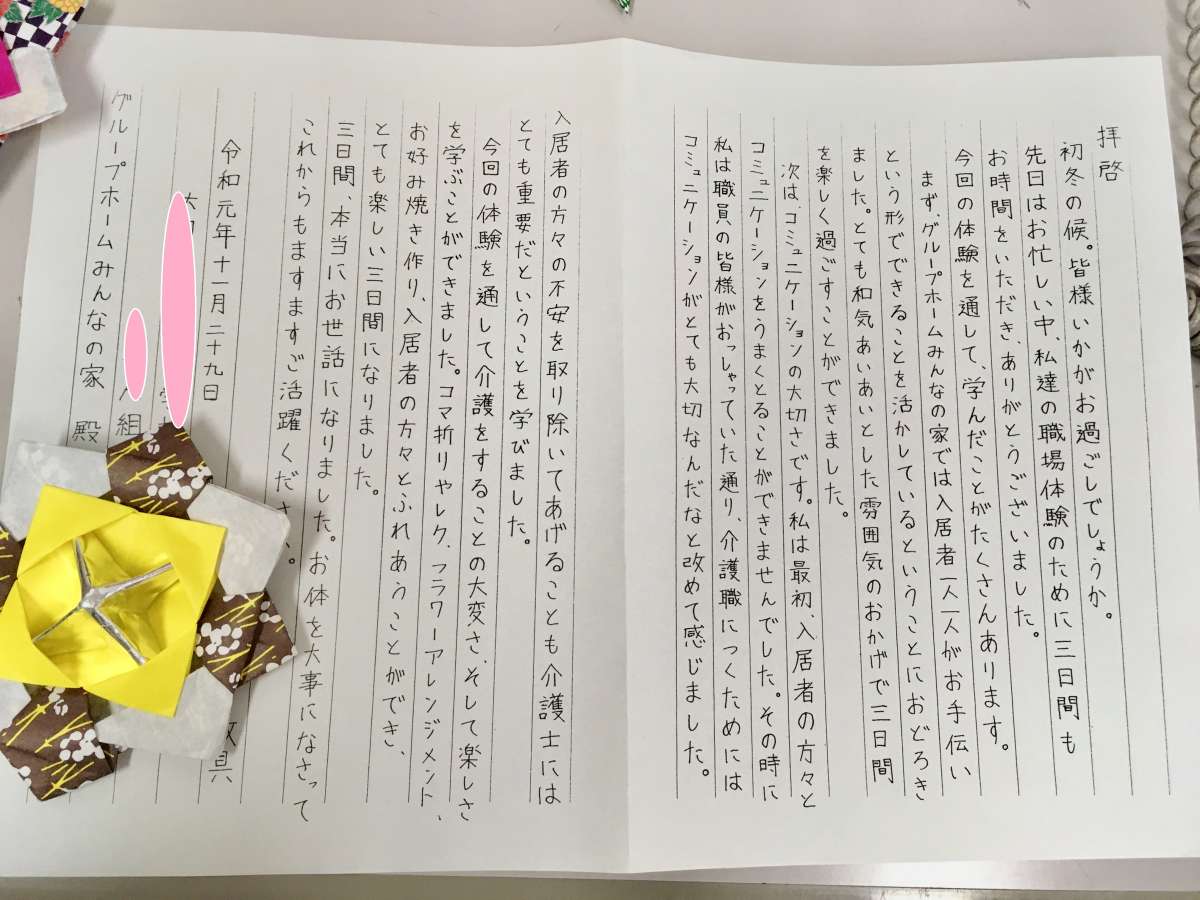 拝啓
初冬の候。皆様いかがお過ごしでしょうか。
先日はお忙しい中、私達の職場体験のために三日間も
お時間をいただき、ありがとうございました。
今回の体験を通して、学んだことがたくさんあります。
まず、グループホームみんなの家では入居者一人一人がお手伝い
という形でできることを活かしているということにおどろき
ました。とても和気あいあいとした雰囲気のおかげで三日間
を楽しく過ごすことができました。
次は、コミュニケーションの大切さです。私は最初、入居者の方々と
コミュニケーションをうまくとることができませんでした。その時に
私は職員の皆様がおっしゃっていた通り、介護職につくためには
コミュニケーションがとても大切なんだなと改めて感じました。
入居者の方々の不安を取り除いてあげることも介護士には
とても重要だということを学びました。
今回の体験を通して介護をすることの大変さ、そして楽しさ
を学ぶことができました。コマ折りやレク、フラワーアレンジメント、
お好み焼き作り、入居者の方々とふれあうことができ、
とても楽しい三日間になりました。
三日間、本当にお世話になりました。お体を大事になさって
これからもますますご活躍ください。
具
令和元年十一月二十九日
組
グループホームみんなの家 殿